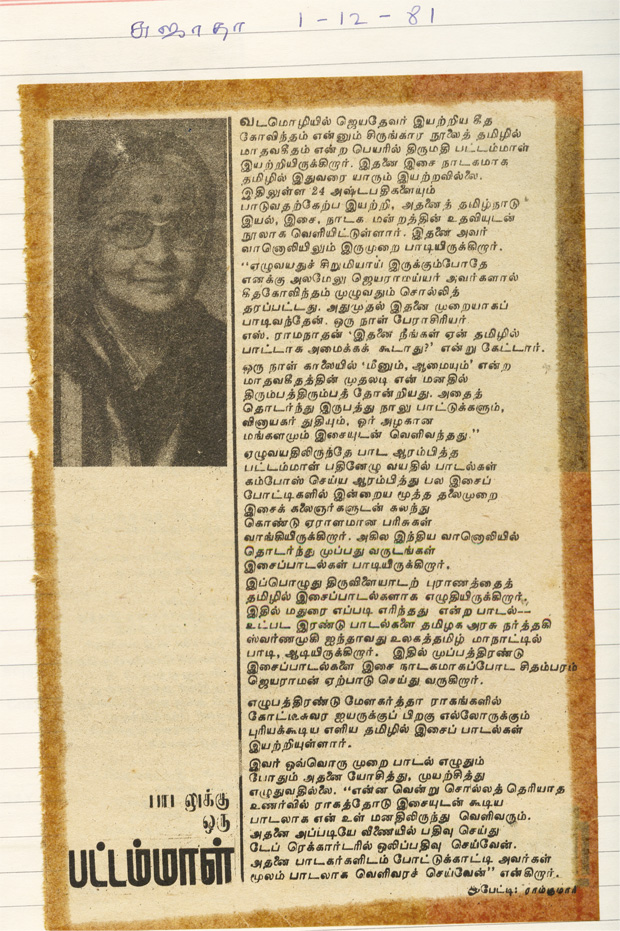 சுஜாதா 1-12-81
வடமொழியில் ஜெயதேவர் இயற்றிய கீத
கோவிந்தம் என்னும் சிருங்கார நூலைத் தமிழில்
மாதவகீதம் என்ற பெயரில் திருமதி பட்டம்மாள்
இயற்றியிருக்கிறார். இதனை இசை நாடகமாக
தமிழில் இதுவரை யாரும் இயற்றவில்லை.
இதிலுள்ள 24 அஷ்டபதிகளையும்
பாடுவதற்கேற்ப இயற்றி, அதனைத் தமிழ்நாடு
இயல், இசை, நாடக மன்றத்தின் உதவியுடன்
நூலாக வெளியிட்டுள்ளார். இதனை அவர்
வானொலியிலும் இருமுறை பாடியிருக்கிறார்.
“ஏழுவயதுச் சிறுமியாய் இருக்கும்போதே
எனக்கு அலமேலு ஜெயராமய்யர் அவர்களால்
கீதகோவிந்தம் முழுவதும் சொல்லித்
தரப்பட்டது. அதுமுதல் இதனை முறையாகப்
பாடிவந்தேன். ஒரு நாள் பேராசிரியர்
எஸ். ராமநாதன் ‘இதனை நீங்கள் ஏன் தமிழில்
பாட்டாக அமைக்கக் கூடாது?’ என்று கேட்டார்.
ஒரு நாள் காலையில் ‘மீனும், ஆமையும்’ என்ற
மாதவகீதத்தின் முதலடி என் மனதில்
திரும்பத்திரும்பத் தோன்றியது. அதைத்
தொடர்ந்து இருபத்து நாலு பாட்டுக்களும்,
விநாயகர் துதியும், ஓர் அழகான
மங்களமும் இசையுடன் வெளிவந்தது.”
ஏழுவயதிலிருந்தே பாட ஆரம்பித்த
பட்டம்மாள் பதினேழு வயதில் பாடல்கள்
கம்போஸ் செய்ய ஆரம்பித்து பல இசைப்
போட்டிகளில் இன்றைய மூத்த தலைமுறை
இசைக் கலைஞர்களுடன் கலந்து
கொண்டு ஏராளமான பரிசுகள்
வாங்கியிருக்கிறார். அகில இந்திய வானொலியில்
தொடர்ந்து முப்பது வருடங்கள்
இசைப்பாடல்கள் பாடியிருக்கிறார்.
இப்பொழுது திருவிளையாடற் புராணத்தைத்
தமிழில் இசைப்பாடல்களாக எழுதியிருக்கிறார்.
இதில் மதுரை எப்படி எரிந்தது என்ற பாடல்--
உட்பட இரண்டு பாடல்களை தமிழக அரசு நர்த்தகி
ஸ்வர்ணமுகி ஐந்தாவது உலகத்தமிழ் மாநாட்டில்
பாடி, ஆடியிருக்கிறார். இதில் முப்பத்திரண்டு
இசைப்பாடல்களை இசை நாடகமாகப்போட சிதம்பரம்
ஜெயராமன் ஏற்பாடு செய்து வருகிறார்.
எழுபத்திரண்டு மேளகர்த்தா ராகங்களில்
கோட்டீசுவர ஐயருக்குப் பிறகு எல்லோருக்கும்
புரியக்கூடிய எளிய தமிழில் இசைப் பாடல்கள்
இயற்றியுள்ளார்.
இவர் ஒவ்வொரு முறை பாடல் எழுதும்
போதும் அதனை யோசித்து, முயற்சித்து
எழுதுவதில்லை. “என்ன வென்று சொல்லத் தெரியாத
உணர்வில் ராகத்தோடு இசையுடன் கூடிய
பாடலாக என் உள் மனதிலிருந்து வெளிவரும்.
அதனை அப்படியே வீணையில் பதிவு செய்து
டேப் ரெக்கார்டரில் ஒலிப்பதிவு செய்வேன்.
அதனை பாடகர்களிடம் போட்டுக்காட்டி அவர்கள்
மூலம் பாடலாக வெளிவரச் செய்வேன்” என்கிறார்.
பேட்டி: ராம்குமார்
பாடலுக்கு
ஒரு
பட்டம்மாள்